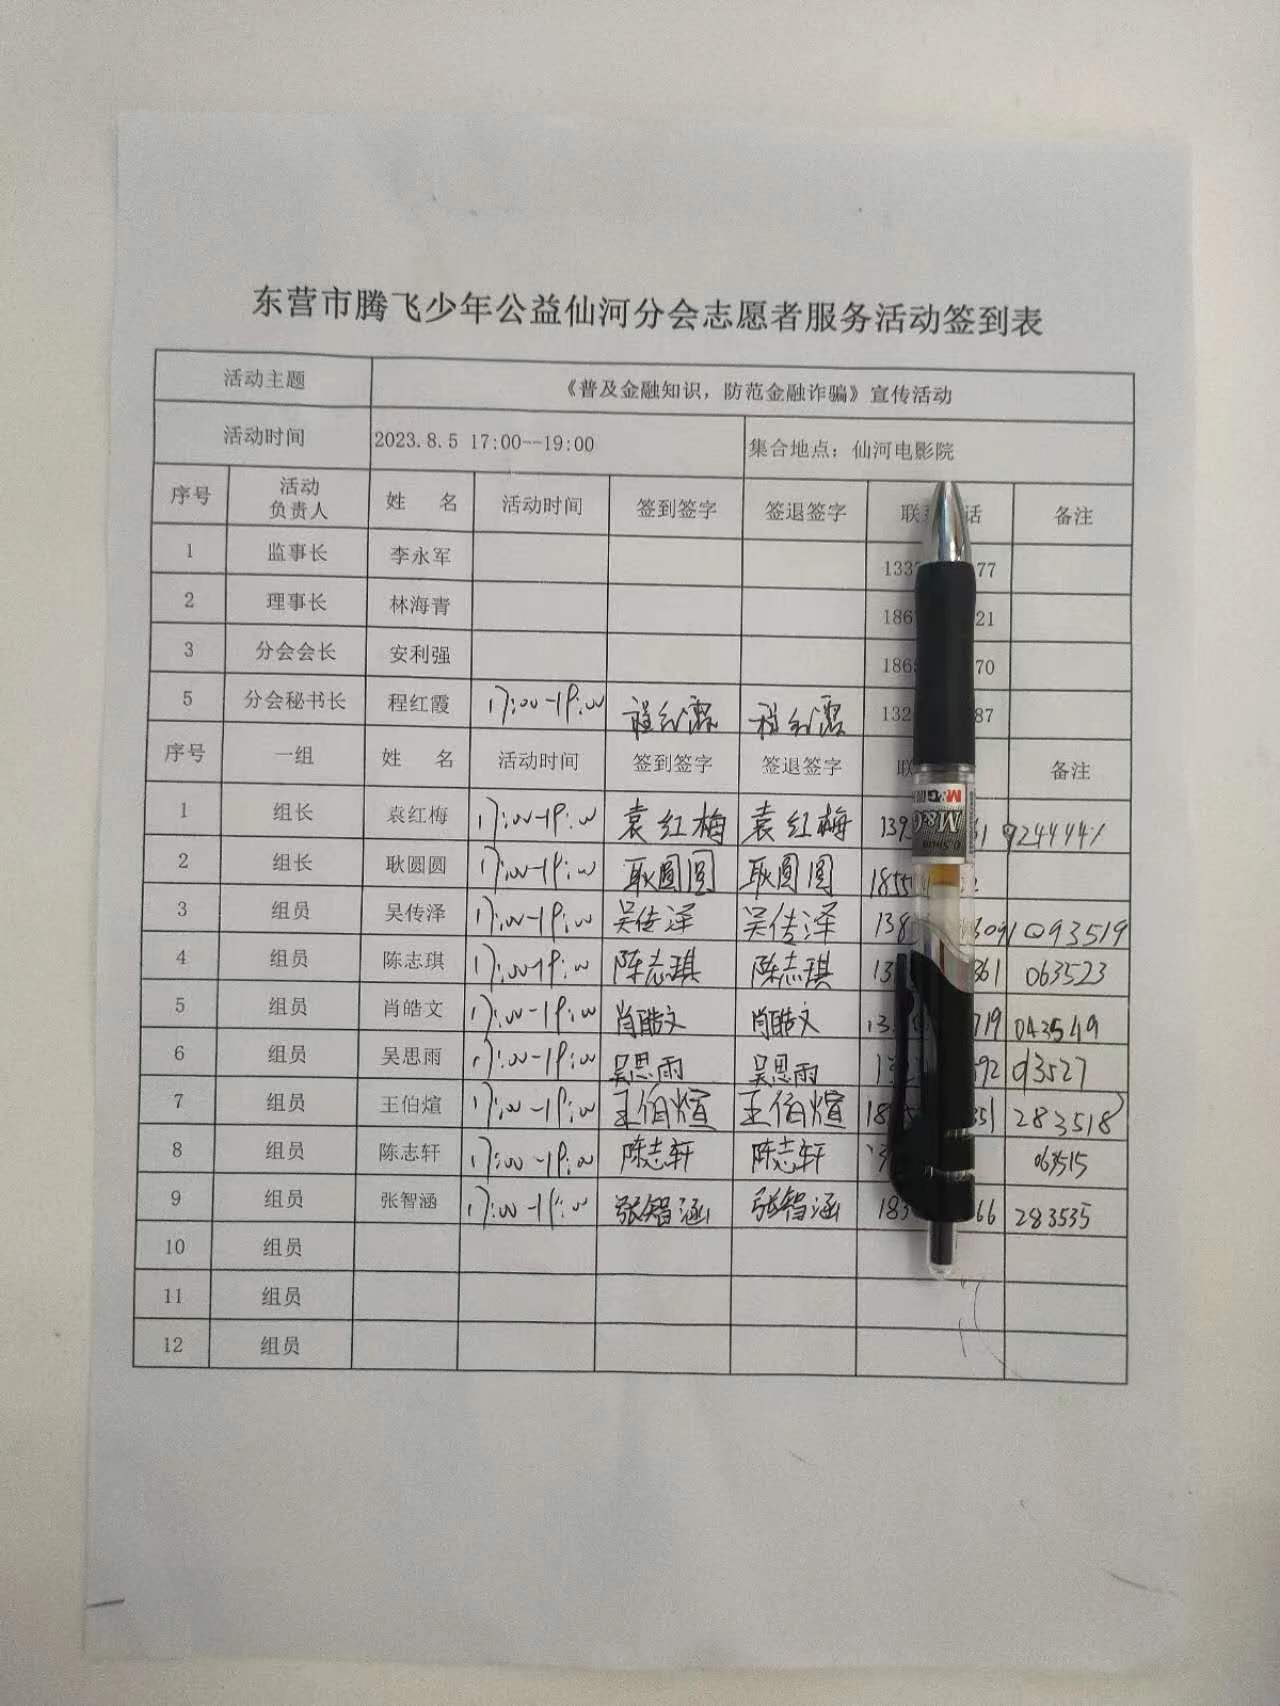 东营市腾飞少年公益仙河分会志愿者服务活动签到表
活动主题 《普及金融知识，防范金融诈骗》宣传活动
活动时间 2023.8.5 17:00--19:00 集合地点：仙河电影院
序号 活动负责人 姓 名 活动时间 签到签字 签退签字 联 话 备注
1 监事长 李永军 133 77
2 理事长 林海青 186 21
3 分会会长 安利强 186 70
5 分会秘书长 程红霞 17:00-19:00 程红霞 程红霞 132 87
序号 一组 姓 名 活动时间 签到签字 签退签字 联 备注
1 组长 袁红梅 17:00-19:00 袁红梅 袁红梅 139
2 组长 耿圆圆 17:00-19:00 耿圆圆 耿圆圆 1855
3 组员 吴传泽 17:00-19:00 吴传泽 吴传泽 138 093519
4 组员 陈志琪 17:00-19:00 陈志琪 陈志琪 13 361 063523
5 组员 肖皓文 17:00-19:00 肖皓文 肖皓文 13 719 043549
6 组员 吴思雨 17:00-19:00 吴思雨 吴思雨 592
7 组员 王伯煊 17:00-19:00 王伯煊 王伯煊 18 351 283518
8 组员 陈志轩 17:00-19:00 陈志轩 陈志轩 063515
9 组员 张智涵 17:00-19:00 张智涵 张智涵 183 66 283535
10 组员
11 组员
12 组员
M&G
0.5mm